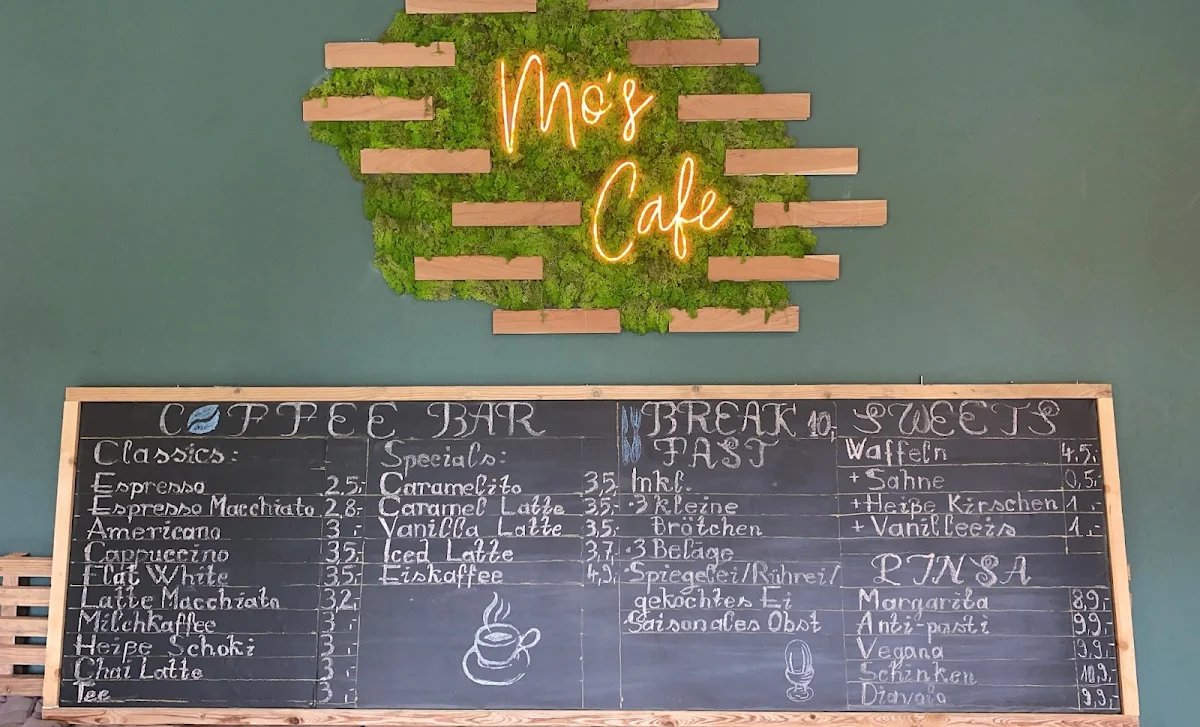 Mo's
Cafe
COFFEE BAR
Classics:
Espresso 2,5,-
Espresso Macchiato 2,8,-
Americano 3,-
Cappuccino 3,5,-
Flat White 3,5,-
Latte Macchiato 3,2,
Milchkaffee 3,-
Heiße Schoki 3,-
Chai Latte 3,-
Tee 3,-
Specials:
Caramelito 3,5,
Caramel Latte 3,5,-
Vanilla Latte 3,5,-
Iced Latte 3,7,
Eiskaffee 4,9,
BREAK 10,-
FAST
Inkl.
·3 kleine
Brötchen
·3 Beläge
·Spiegelei/Rührei/
gekochtes Ei
·Saisonales Obst
SWEETS
Waffeln 4,5,-
+ Sahne 0,5,-
+ Heiße Kirschen 1.-
+ Vanilleeis 1.-
PINSA
Margarita 8,9,-
Anti-pasti 9,9,-
Vegana 9,9,-
Schinken 10,9,-
Diavola 9,9,-